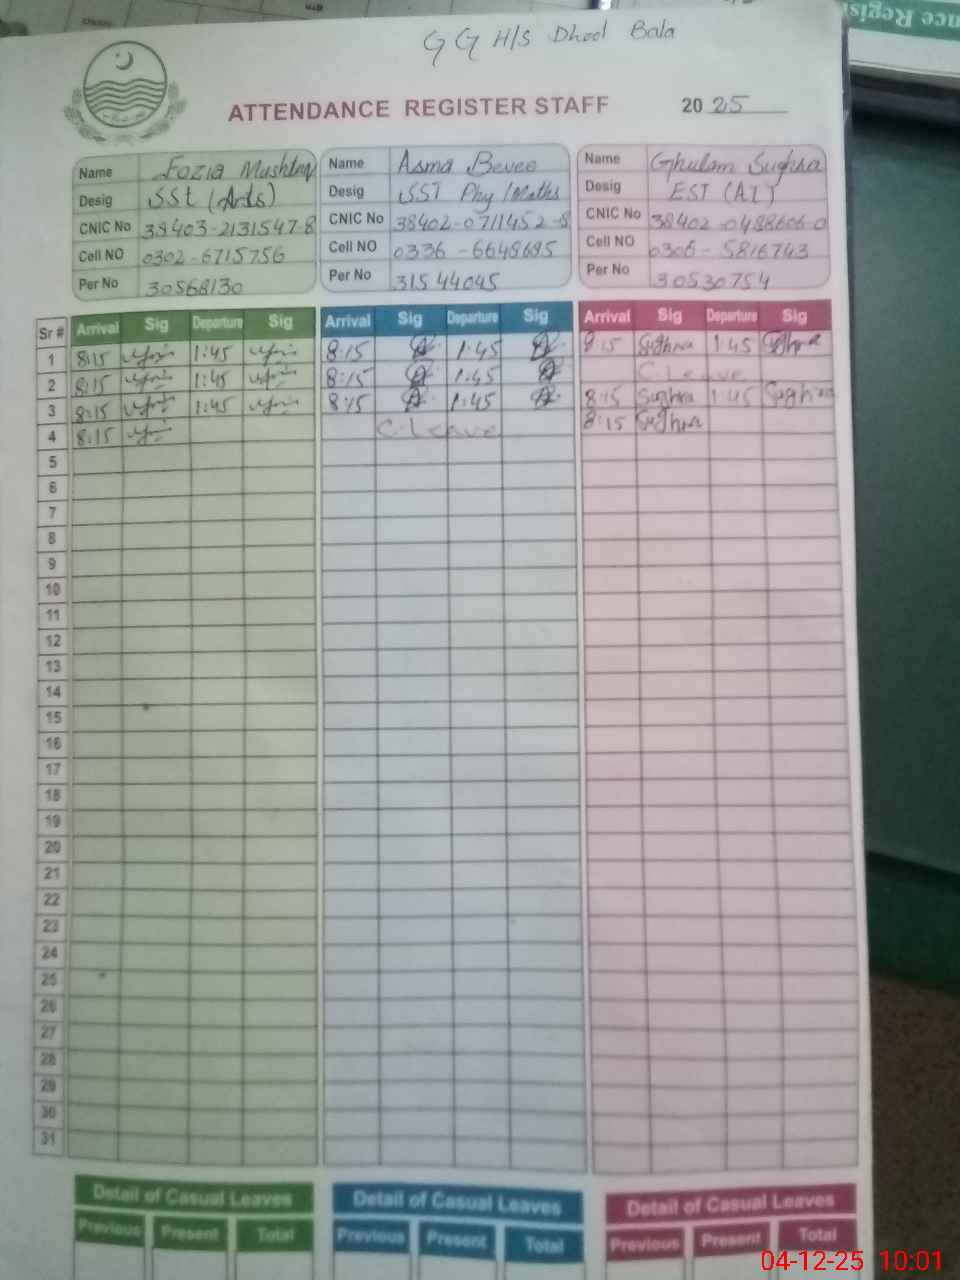 nce Regis
G G H/S Dhool Bala
ATTENDANCE REGISTER STAFF 2025
Name Fozia Mushtaq Name Asma Bevee Name Ghulam Sughra
Desig SSt (Arts) Desig SST Phy/Maths Desig EST (AT)
CNIC No 38403-2131547-8 CNIC No 38402-0711452-8 CNIC No 38402-0488606-0
Cell NO 0302-6715756 Cell NO 0336-6648685 Cell NO 0306-5816743
Per No 30568130 Per No 31544045 Per No 30530754
Sr # Arrival Sig Departure Sig Arrival Sig Departure Sig Arrival Sig Departure Sig
1 8:15 1:45 8:15 1:45 8:15 Sughra 1:45 Sughra
2 8:15 1:45 8:15 1:45 C.Leave
3 8:15 1:45 8:15 1:45 8:15 Sughra 1:45 Sughra
4 8:15 C.Leave 8:15 Sughra
5
6
7
8
9
10
11
12
13
14
15
16
17
18
19
20
21
22
23
24
25
26
27
28
29
30
31
Detail of Casual Leaves Detail of Casual Leaves Detail of Casual Leaves
Previous Present Total Previous Present Total Previous Present Total
04-12-25 10:01